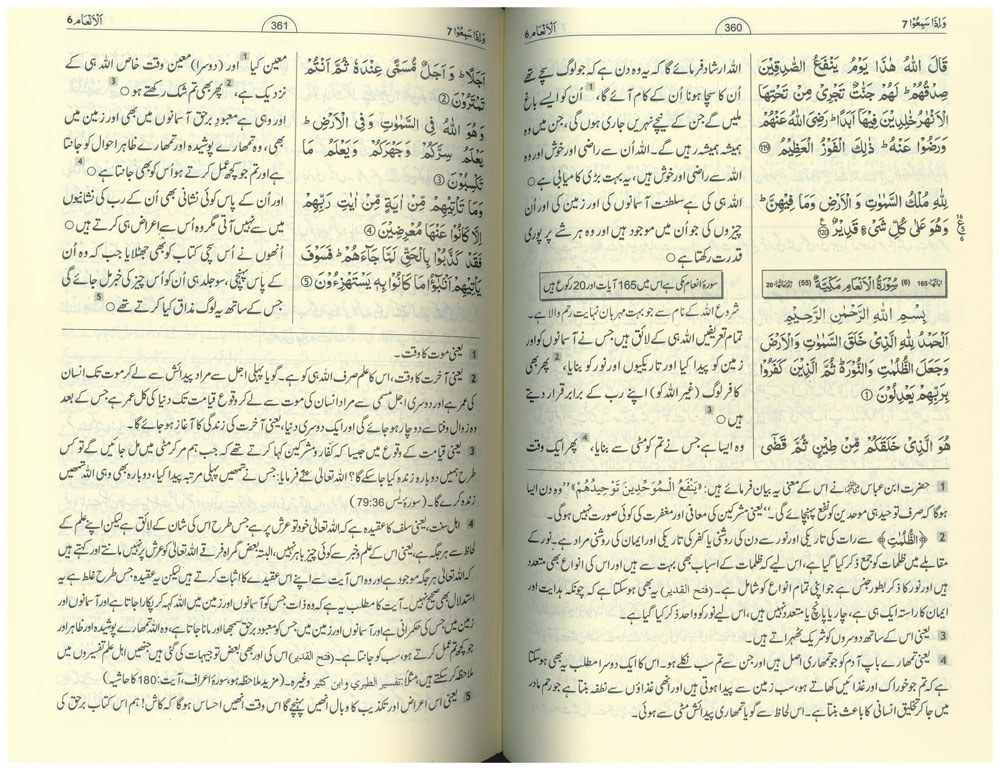 وَاِذَا سَمِعُوْا 7
360
اَلْاَنْعَام 6
قَالَ اللّٰهُ هٰذَا يَوْمُ يَنْفَعُ الصّٰدِقِيْنَ
صِدْقُهُمْ ؕ لَهُمْ جَنّٰتٌ تَجْرِيْ مِنْ تَحْتِهَا
الْاَنْهٰرُ خٰلِدِيْنَ فِيْهَاۤ اَبَدًا ؕ رَضِيَ اللّٰهُ عَنْهُمْ
وَرَضُوْا عَنْهُ ؕ ذٰلِكَ الْفَوْزُ الْعَظِيْمُ ﴿119﴾
لِلّٰهِ مُلْكُ السَّمٰوٰتِ وَ الْاَرْضِ وَمَا فِيْهِنَّ ؕ
وَهُوَ عَلٰى كُلِّ شَيْءٍ قَدِيْرٌ ﴿120﴾
اللہ ارشاد فرمائے گا کہ یہ وہ دن ہے کہ جو لوگ سچے تھے
اُن کا سچا ہونا اُن کے کام آئے گا، 1 اُن کو ایسے باغ
ملیں گے جن کے نیچے نہریں جاری ہوں گی، جن میں وہ
ہمیشہ ہمیشہ رہیں گے۔ اللہ اُن سے راضی اور خوش اور وہ
اللہ سے راضی اور خوش ہیں، یہ بہت بڑی کامیابی ہے ○
اللہ ہی کی ہے سلطنت آسمانوں کی اور زمین کی اور اُن
چیزوں کی جو اُن میں موجود ہیں اور وہ ہر شے پر پوری
قدرت رکھتا ہے ○
(6) سُوْرَةُ الْاَنْعَامِ مَكِّيَّةٌ (55)
سورۂ انعام مکی ہے اس میں 165 آیات اور 20 رکوع ہیں
بِسْمِ اللّٰهِ الرَّحْمٰنِ الرَّحِيْمِ
اَلْحَمْدُ لِلّٰهِ الَّذِيْ خَلَقَ السَّمٰوٰتِ وَالْاَرْضَ
وَجَعَلَ الظُّلُمٰتِ وَالنُّوْرَ ؕ ثُمَّ الَّذِيْنَ كَفَرُوْا
بِرَبِّهِمْ يَعْدِلُوْنَ ﴿1﴾
هُوَ الَّذِيْ خَلَقَكُمْ مِّنْ طِيْنٍ ثُمَّ قَضٰۤى
شروع اللہ کے نام سے جو بہت مہربان نہایت رحم والا ہے۔
تمام تعریفیں اللہ ہی کے لائق ہیں جس نے آسمانوں کو اور
زمین کو پیدا کیا اور تاریکیوں اور نور کو بنایا، 2 پھر بھی
کافر لوگ (غیر اللہ کو) اپنے رب کے برابر قرار دیتے
ہیں ○ 3
وہ ایسا ہے جس نے تم کو مٹی سے بنایا، 4 پھر ایک وقت
1 حضرت ابن عباس نے اس کے معنی یہ بیان فرمائے ہیں: «يَنْفَعُ الْمُوَحِّدِيْنَ تَوْحِيْدُهُمْ» ”وہ دن ایسا
ہوگا کہ صرف توحید ہی موحدین کو نفع پہنچائے گی۔“ یعنی مشرکین کی معافی اور مغفرت کی کوئی صورت نہیں ہوگی۔
2 ﴿الظُّلُمٰتِ﴾ سے رات کی تاریکی اور نور سے دن کی روشنی یا کفر کی تاریکی اور ایمان کی روشنی مراد ہے۔ نور کے
مقابلے میں ظلمات کو جمع ذکر کیا گیا ہے، اس لیے کہ ظلمات کے اسباب بھی بہت سے ہیں اور اس کی انواع بھی متعدد
ہیں اور نور کا ذکر بطور جنس ہے جو اپنی تمام انواع کو شامل ہے۔ (فتح القدیر) یہ بھی ہوسکتا ہے کہ چونکہ ہدایت اور
ایمان کا راستہ ایک ہی ہے، چار یا پانچ یا متعدد نہیں ہیں، اس لیے نور کو واحد ذکر کیا گیا ہے۔
3 یعنی اس کے ساتھ دوسروں کو شریک ٹھہراتے ہیں۔
4 یعنی تمھارے باپ آدم کو جو تمھاری اصل ہیں اور جن سے تم سب نکلے ہو۔ اس کا ایک دوسرا مطلب یہ بھی ہوسکتا
ہے کہ تم جو خوراک اور غذائیں کھاتے ہو، سب زمین سے پیدا ہوتی ہیں اور انھی غذاؤں سے نطفہ بنتا ہے جو رحم مادر
میں جا کر تخلیق انسانی کا باعث بنتا ہے۔ اس لحاظ سے گویا تمھاری پیدائش مٹی سے ہوئی۔
وَاِذَا سَمِعُوْا 7
361
اَلْاَنْعَام 6
اَجَلًا ؕ وَ اَجَلٌ مُّسَمًّى عِنْدَهٗ ثُمَّ اَنْتُمْ
تَمْتَرُوْنَ ﴿2﴾
وَهُوَ اللّٰهُ فِي السَّمٰوٰتِ وَفِي الْاَرْضِ ؕ
يَعْلَمُ سِرَّكُمْ وَجَهْرَكُمْ وَيَعْلَمُ مَا
تَكْسِبُوْنَ ﴿3﴾
وَمَا تَاْتِيْهِمْ مِّنْ اٰيَةٍ مِّنْ اٰيٰتِ رَبِّهِمْ
اِلَّا كَانُوْا عَنْهَا مُعْرِضِيْنَ ﴿4﴾
فَقَدْ كَذَّبُوْا بِالْحَقِّ لَمَّا جَآءَهُمْ ؕ فَسَوْفَ
يَاْتِيْهِمْ اَنْۢبٰٓؤُا مَا كَانُوْا بِهٖ يَسْتَهْزِءُوْنَ ﴿5﴾
معین کیا 1 اور (دوسرا) معین وقت خاص اللہ ہی کے
نزدیک ہے، 2 پھر بھی تم شک رکھتے ہو ○ 3
اور وہی ہے معبود برحق آسمانوں میں بھی اور زمین میں
بھی، وہ تمھارے پوشیدہ اور تمھارے ظاہر احوال کو جانتا
ہے اور تم جو کچھ عمل کرتے ہو اس کو بھی جانتا ہے ○ 4
اور اُن کے پاس کوئی نشانی بھی اُن کے رب کی نشانیوں
میں سے نہیں آتی مگر وہ اُس سے اعراض ہی کرتے ہیں ○
اُنھوں نے اُس سچی کتاب کو بھی جھٹلایا جب کہ وہ اُن
کے پاس پہنچی، سو جلد ہی اُن کو اُس چیز کی خبر مل جائے گی
جس کے ساتھ یہ لوگ مذاق کیا کرتے تھے ○ 5
1 یعنی موت کا وقت۔
2 یعنی آخرت کا وقت، اس کا علم صرف اللہ ہی کو ہے۔ گویا پہلی اجل سے مراد پیدائش سے لے کر موت تک انسان
کی عمر ہے اور دوسری اجل مسمی سے مراد انسان کی موت سے لے کر وقوع قیامت تک دنیا کی کل عمر ہے، جس کے بعد
وہ زوال و فنا سے دوچار ہو جائے گی اور ایک دوسری دنیا، یعنی آخرت کی زندگی کا آغاز ہو جائے گا۔
3 یعنی قیامت کے وقوع میں جیسا کہ کفار و مشرکین کہا کرتے تھے کہ جب ہم مر کر مٹی میں مل جائیں گے تو کس
طرح ہمیں دوبارہ زندہ کیا جا سکے گا؟ اللہ تعالیٰ نے فرمایا: جس نے تمھیں پہلی مرتبہ پیدا کیا، دوبارہ بھی وہی اللہ تمھیں
زندہ کرے گا۔ (سورۂ یٰس 79:36)
4 اہل سنت، یعنی سلف کا عقیدہ ہے کہ اللہ تعالیٰ خود تو عرش پر ہے جس طرح اس کی شان کے لائق ہے لیکن اپنے علم کے
لحاظ سے ہر جگہ ہے، یعنی اس کے علم و خبر سے کوئی چیز باہر نہیں، البتہ بعض گمراہ فرقے اللہ تعالیٰ کو عرش پر نہیں مانتے اور کہتے ہیں
کہ اللہ تعالیٰ ہر جگہ موجود ہے اور وہ اس آیت سے اپنے اس عقیدے کا اثبات کرتے ہیں لیکن یہ عقیدہ جس طرح غلط ہے یہ
استدلال بھی صحیح نہیں۔ آیت کا مطلب یہ ہے کہ وہ ذات جس کو آسمانوں اور زمین میں اللہ کہہ کر پکارا جاتا ہے اور آسمانوں اور
زمین میں جس کی حکمرانی ہے اور آسمانوں اور زمین میں جس کو معبود برحق سمجھا اور مانا جاتا ہے، وہ اللہ تمھارے پوشیدہ اور ظاہر اور
جو کچھ تم عمل کرتے ہو، سب کو جانتا ہے۔ (فتح القدیر) اس کی اور بھی بعض توجیہات کی گئی ہیں جنھیں اہل علم تفسیروں میں
ملاحظہ کر سکتے ہیں، مثلاً: تفسیر الطبري وابن کثیر وغیرہ۔ (مزید ملاحظہ ہو سورۂ اعراف، آیت: 180 کا حاشیہ)
5 یعنی اس اعراض اور تکذیب کا وبال انھیں پہنچے گا اس وقت انھیں احساس ہوگا کہ کاش! ہم اس کتاب برحق کی